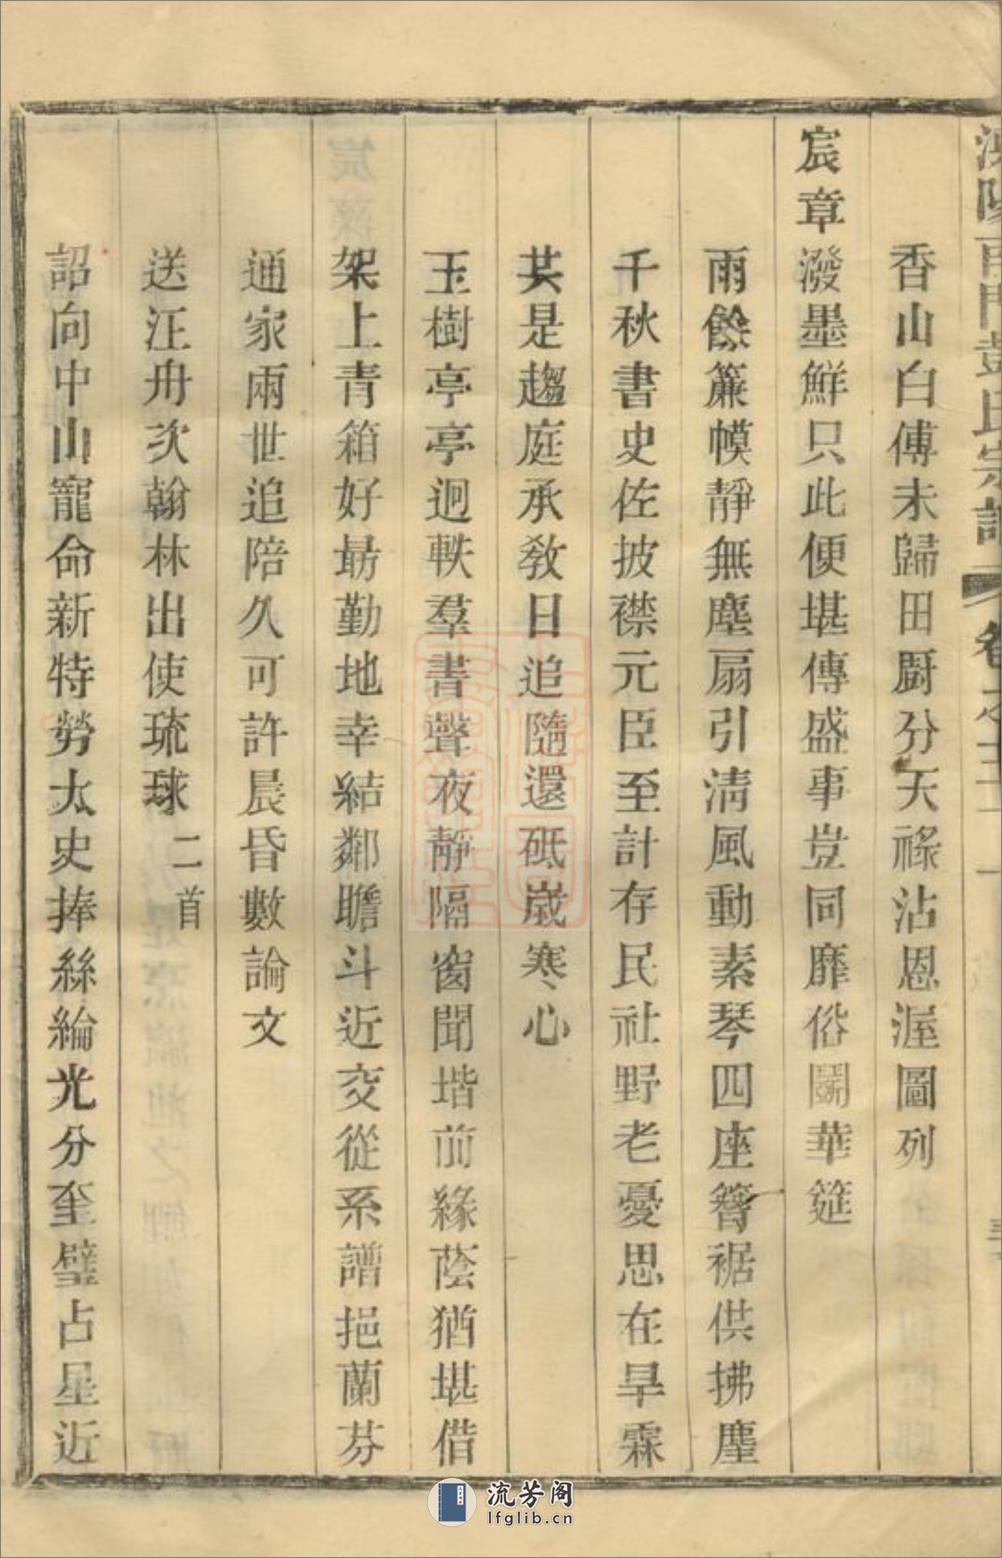 溧陽南門彭氏宗譜 卷之三
香山白傅未歸田廚分天祿沾恩渥圖列
宸章潑墨鮮只此便堪傳盛事豈同靡俗鬭華筵
雨餘簾幙靜無塵扇引淸風動素琴四座簪裾供拂塵
千秋書史佐披襟元臣至計存民社野老憂思在旱霖
共是趨庭承敎日追隨還砥歲寒心
玉樹亭亭迥軼羣書聲夜靜隔窗聞堦前緣蔭猶堪借
架上青箱好最勤地幸結鄰瞻斗近交從系譜挹蘭芬
通家兩世追陪久可許晨昏數論文
送汪舟次翰林出使琉球 二首
詔向中山寵命新特勞太史捧絲綸光分奎璧占星近
流芳阁
lfglib.cn